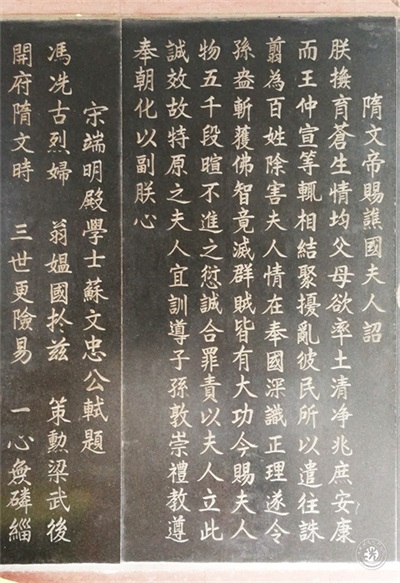 隋文帝賜譙國夫人詔
朕撫育蒼生情均父母欲率土清净兆庶安康
而王仲宣等輒相結聚擾亂彼民所以遣往誅
翦為百姓除害夫人情在奉國深識正理遂令
孫盎斬獲佛智竟滅群賊皆有大功今賜夫人
物五千段暄不進之愆誠合罪責以夫人立此
誠效故特原之夫人宜訓導子孫敦崇禮教遵
奉朝化以副朕心
宋端明殿學士蘇文忠公軾題
馮冼古烈婦 翁媼國扵兹 策勳梁武後
開府隋文時 三世更險易 一心無磷緇